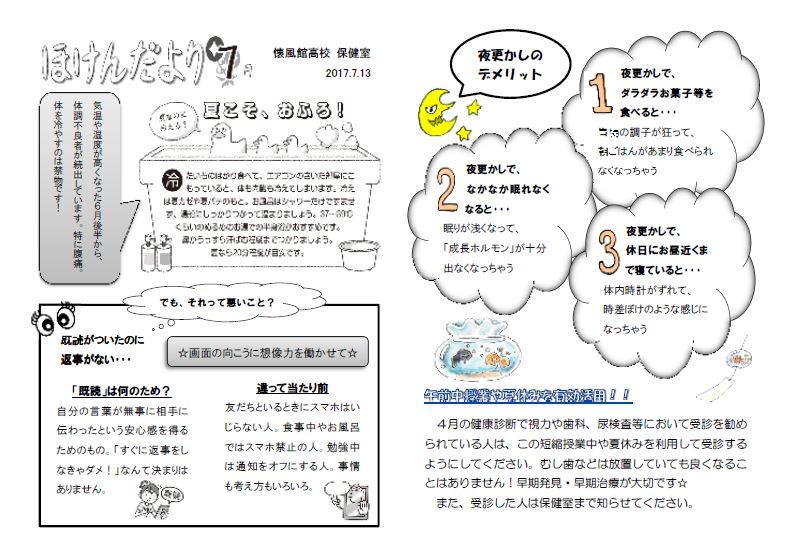 ほけんだより 7月
懐風館高校 保健室
2017.7.13
気温や湿度が高くなった6月後半から、
体調不良者が続出しています。特に腹痛。
体を冷やすのは禁物です!
夏こそ、おふろ!
冷たいものばかり食べて、エアコンのきいた部屋にこ
もっていると、体も内臓も冷えてしまいます。冷え
は夏カゼや夏バテのもと。お風呂はシャワーだけですませ
ず、湯船にしっかりつかって温まりましょう。37~39℃
くらいのぬるめのお湯での半身浴がおすすめです。
鼻からうっすら汗ばむ程度までつかりましょう。
夏なら20分程度が目安です。
でも、それって悪いこと?
既読がついたのに
返事がない・・・
☆画面の向こうに想像力を働かせて☆
「既読」は何のため?
自分の言葉が無事に相手に
伝わったという安心感を得る
ためのもの。「すぐに返事をし
なきゃダメ!」なんて決まりは
ありません。
既読
違って当たり前
友だちといるときにスマホはい
じらない人。食事中やお風呂
ではスマホ禁止の人。勉強中
は通知をオフにする人。事情
も考え方もいろいろ。
夜更かしの
デメリット
1
夜更かしで、
ダラダラお菓子等を
食べると・・・
の調子が狂って、
朝ごはんがあまり食べられ
なくなっちゃう
2
夜更かしで、
なかなか眠れなく
なると・・・
眠りが浅くなって、
「成長ホルモン」が十分
出なくなっちゃう
3
夜更かしで、
休日にお昼近くま
で寝ていると・・・
体内時計がずれて、
時差ぼけのような感じに
なっちゃう
午前中授業や夏休みを有効活用!!
4月の健康診断で視力や歯科、尿検査等において受診を勧め
られている人は、この短縮授業中や夏休みを利用して受診する
ようにしてください。むし歯などは放置していても良くなるこ
とはありません!早期発見・早期治療が大切です☆
また、受診した人は保健室まで知らせてください。